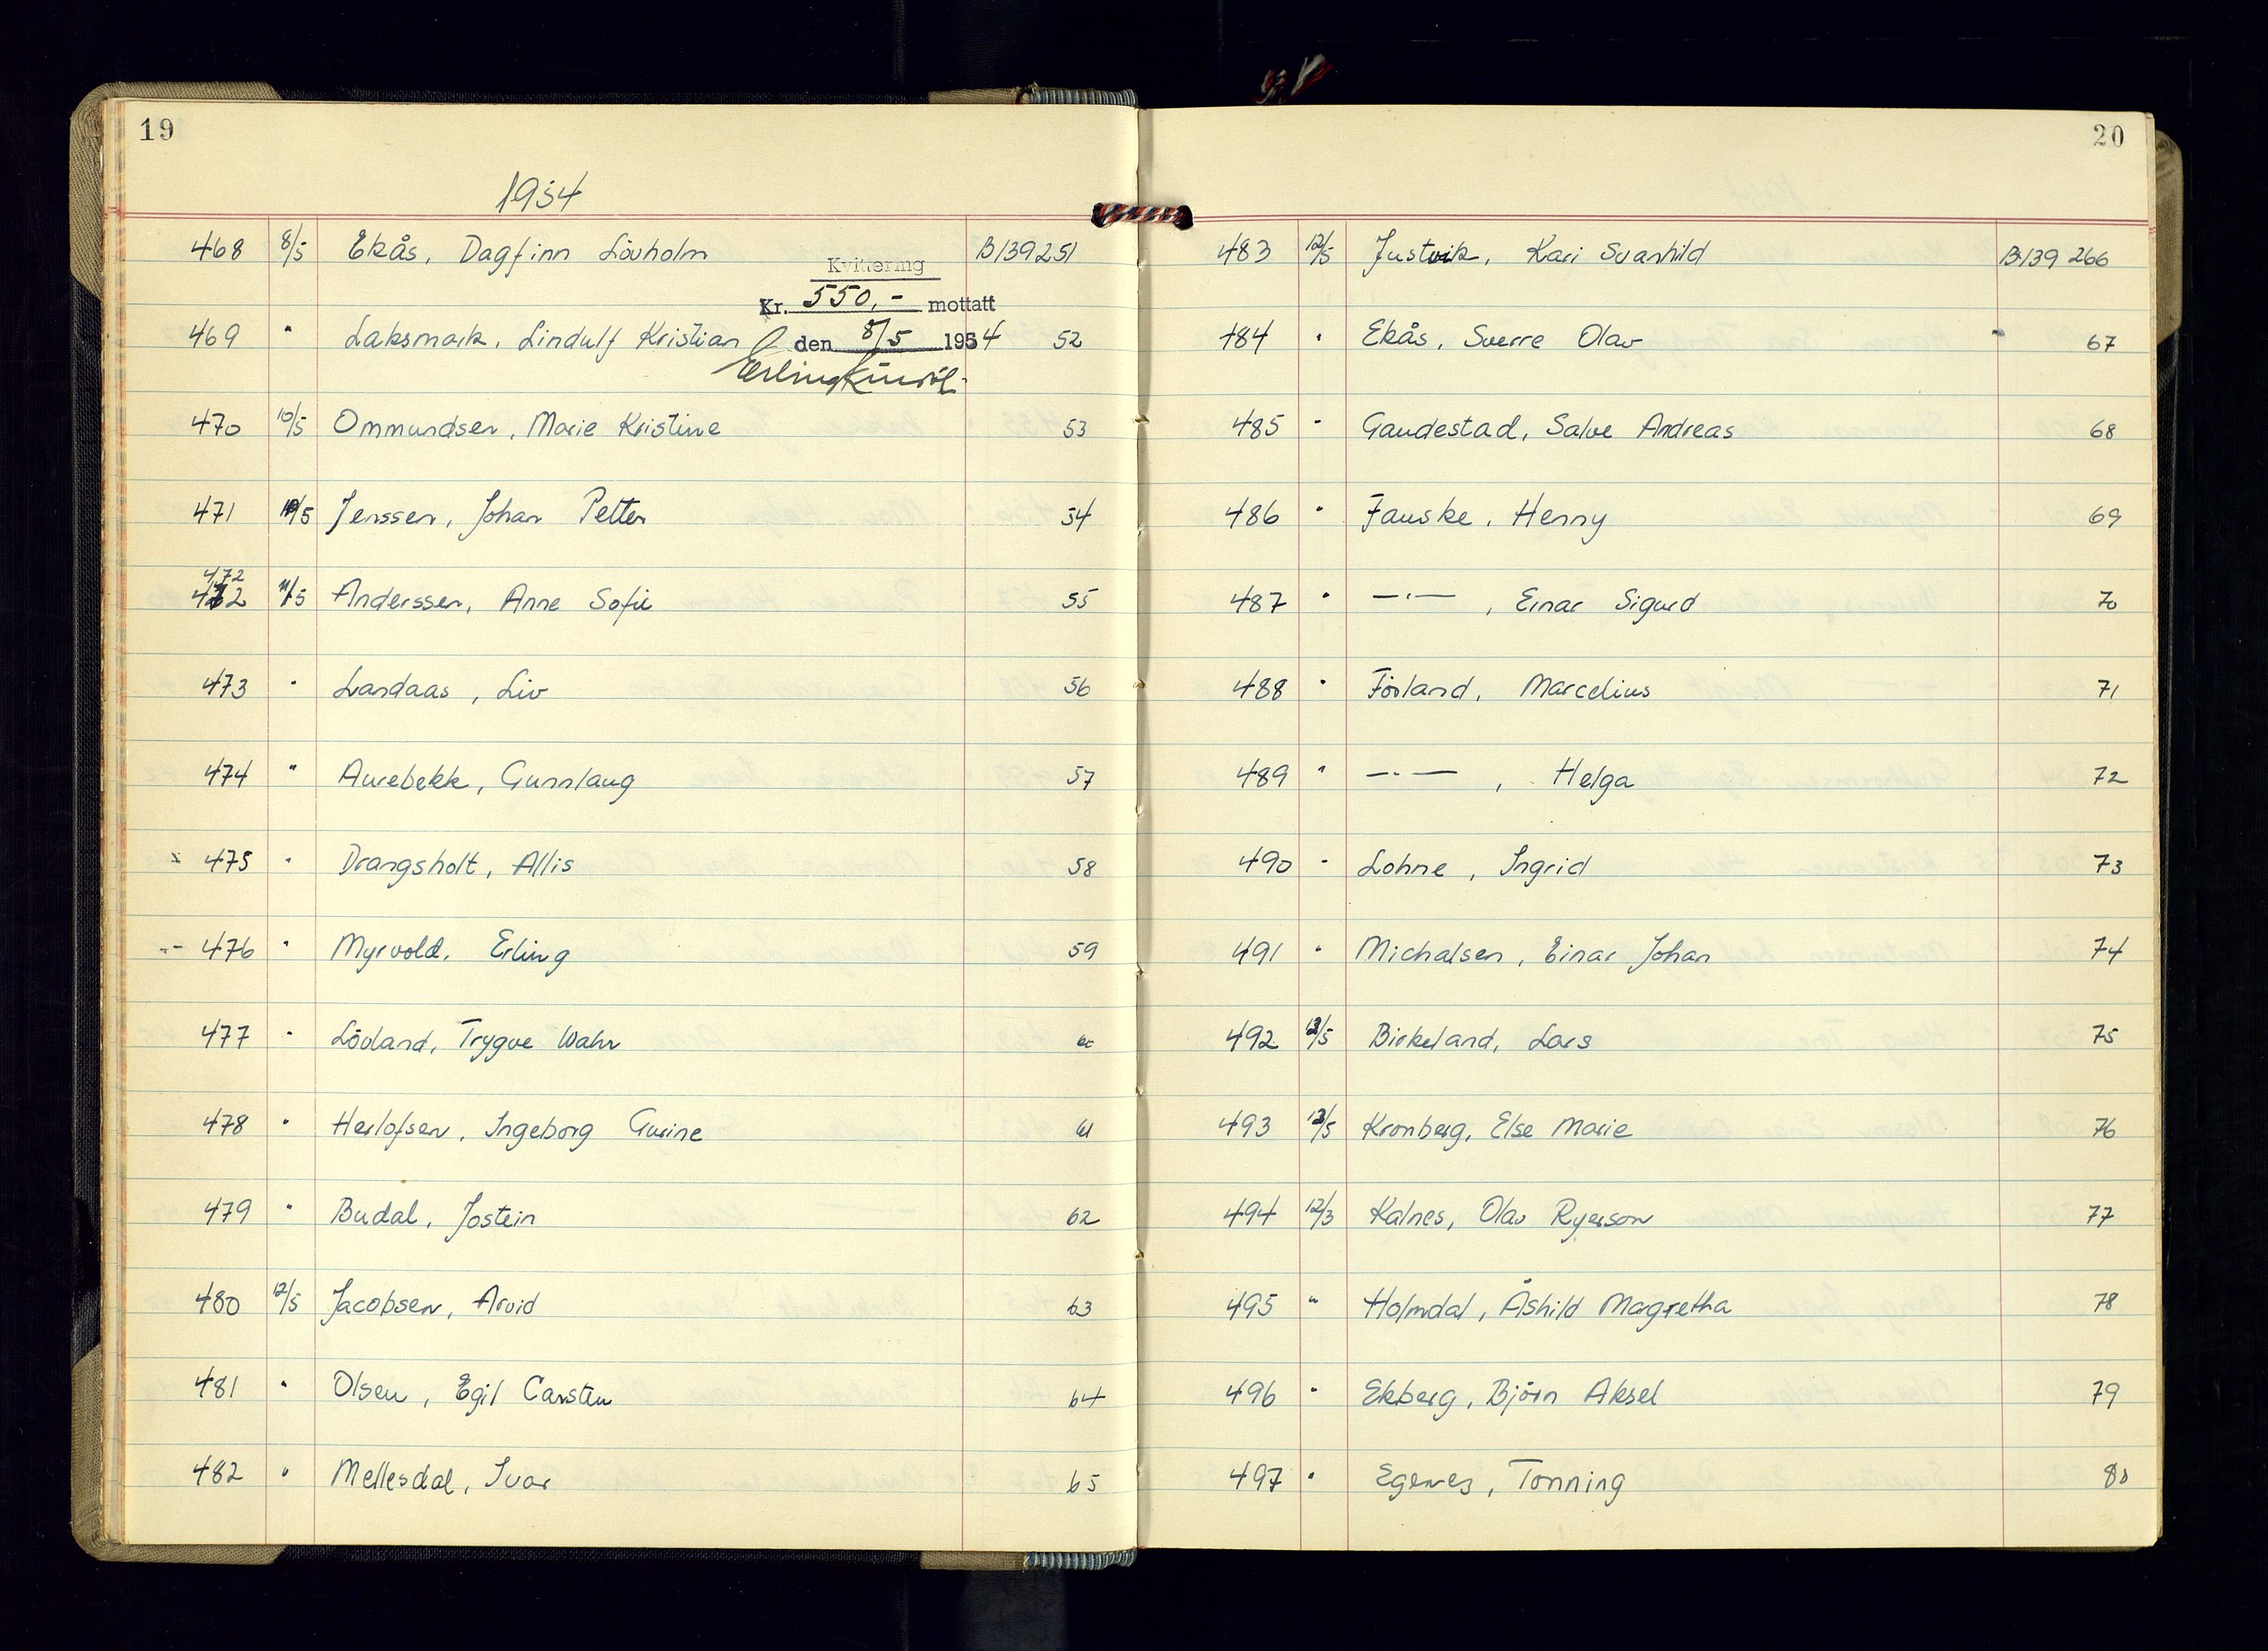 19
1954
468 8/5 Ekås, Dagfinn Lövholm B139251
Kvittering
Kr. 550,- mottatt
469 " Laksmark, Lindulf Kristian den 8/5 1954 52
470 10/5 Ommundsen, Marie Kristine 53
471 10/5 Jenssen, Johan Petter 54
472
472 11/5 Anderssen, Anne Sofie 55
473 " Landaas, Liv 56
474 " Aurebekk, Gunnlaug 57
x 475 " Drangsholt, Allis 58
-- 476 " Myrvold, Erling 59
477 " Lövland, Trygve Wahr 60
478 " Herlofsen, Ingeborg Gurine 61
479 " Budal, Jostein 62
480 12/5 Jacobsen, Arvid 63
481 " Olsen, Egil Carsten 64
482 " Mellesdal, Ivar 65
20
483 12/5 Justvik, Kari Svanhild B139 266
484 " Ekås, Sverre Olav 67
485 " Gaudestad, Salve Andreas 68
486 " Fauske, Henny 69
487 " —·—, Einar Sigurd 70
488 " Försland, Marcelius 71
489 " —·—, Helga 72
490 " Lohne, Ingrid 73
491 " Michalsen, Einar Johan 74
492 12/5 Birkeland, Lars 75
493 12/5 Kronberg, Else Marie 76
494 12/3 Kalnes, Olav Ryerson 77
495 " Holmdal, Åshild Margretha 78
496 " Ekberg, Björn Aksel 79
497 " Egenes, Tonning 80